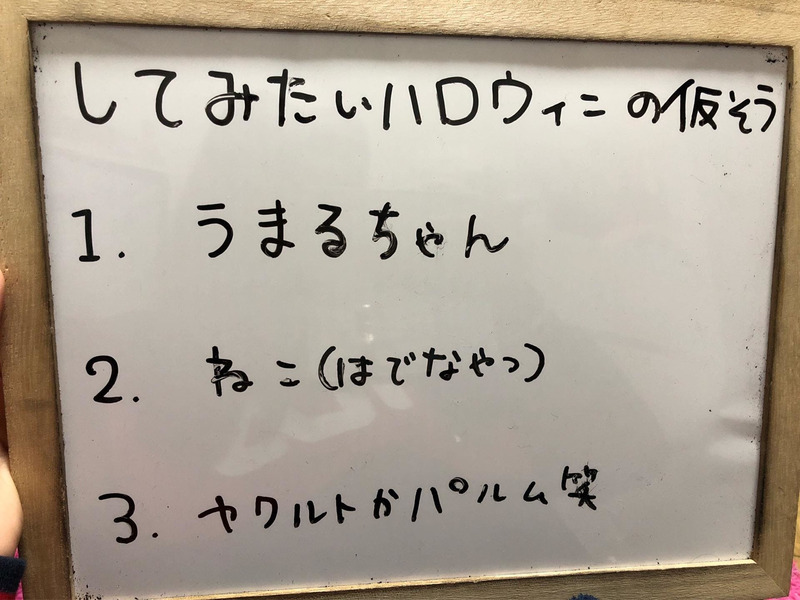 してみたいハロウィンの仮そう
1. うまるちゃん
2. ねこ(はでなやつ)
3. ヤクルトかパルム笑